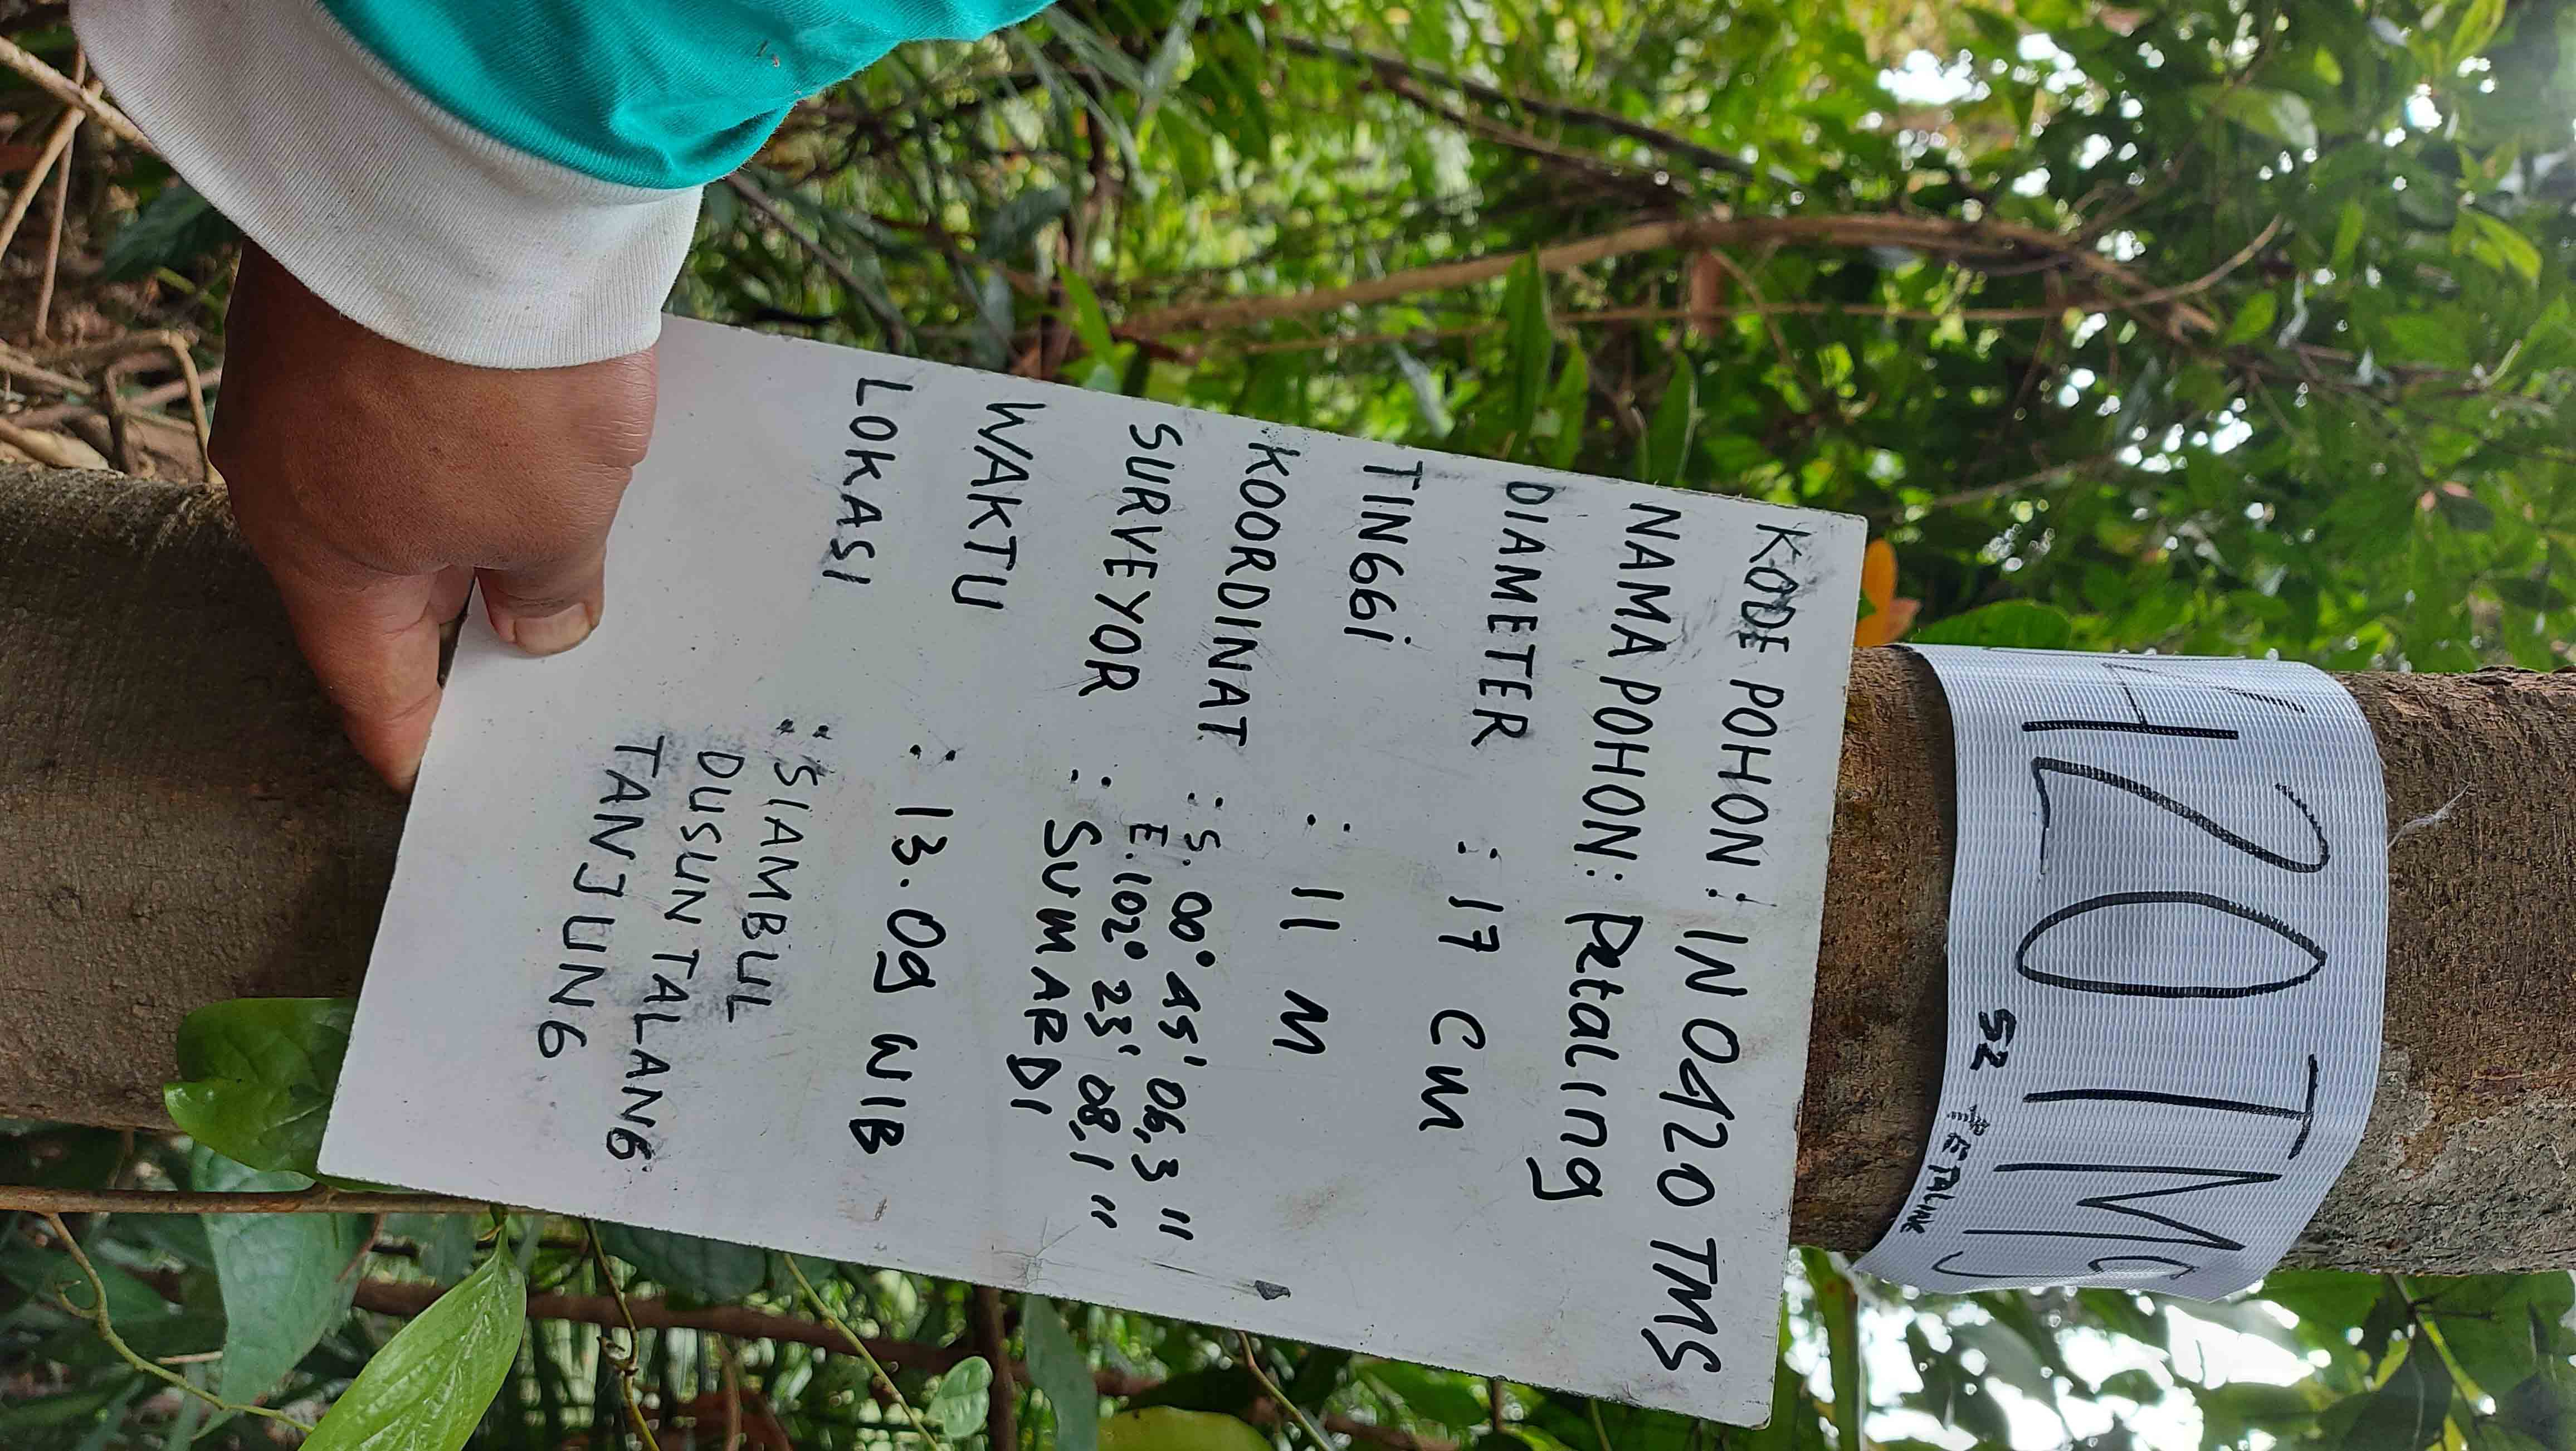 420 TMS
52 PETALING
KODE POHON : IN 0420 TMS
NAMA POHON : Petaling
DIAMETER : 17 CM
TINGGI : 11 M
KOORDINAT : S. 00° 45' 06,3 "
E. 102° 23' 08,1 "
SURVEYOR : SUMARDI
WAKTU : 13.09 WIB
LOKASI : SIAMBUL
DUSUN TALANG
TANJUNG